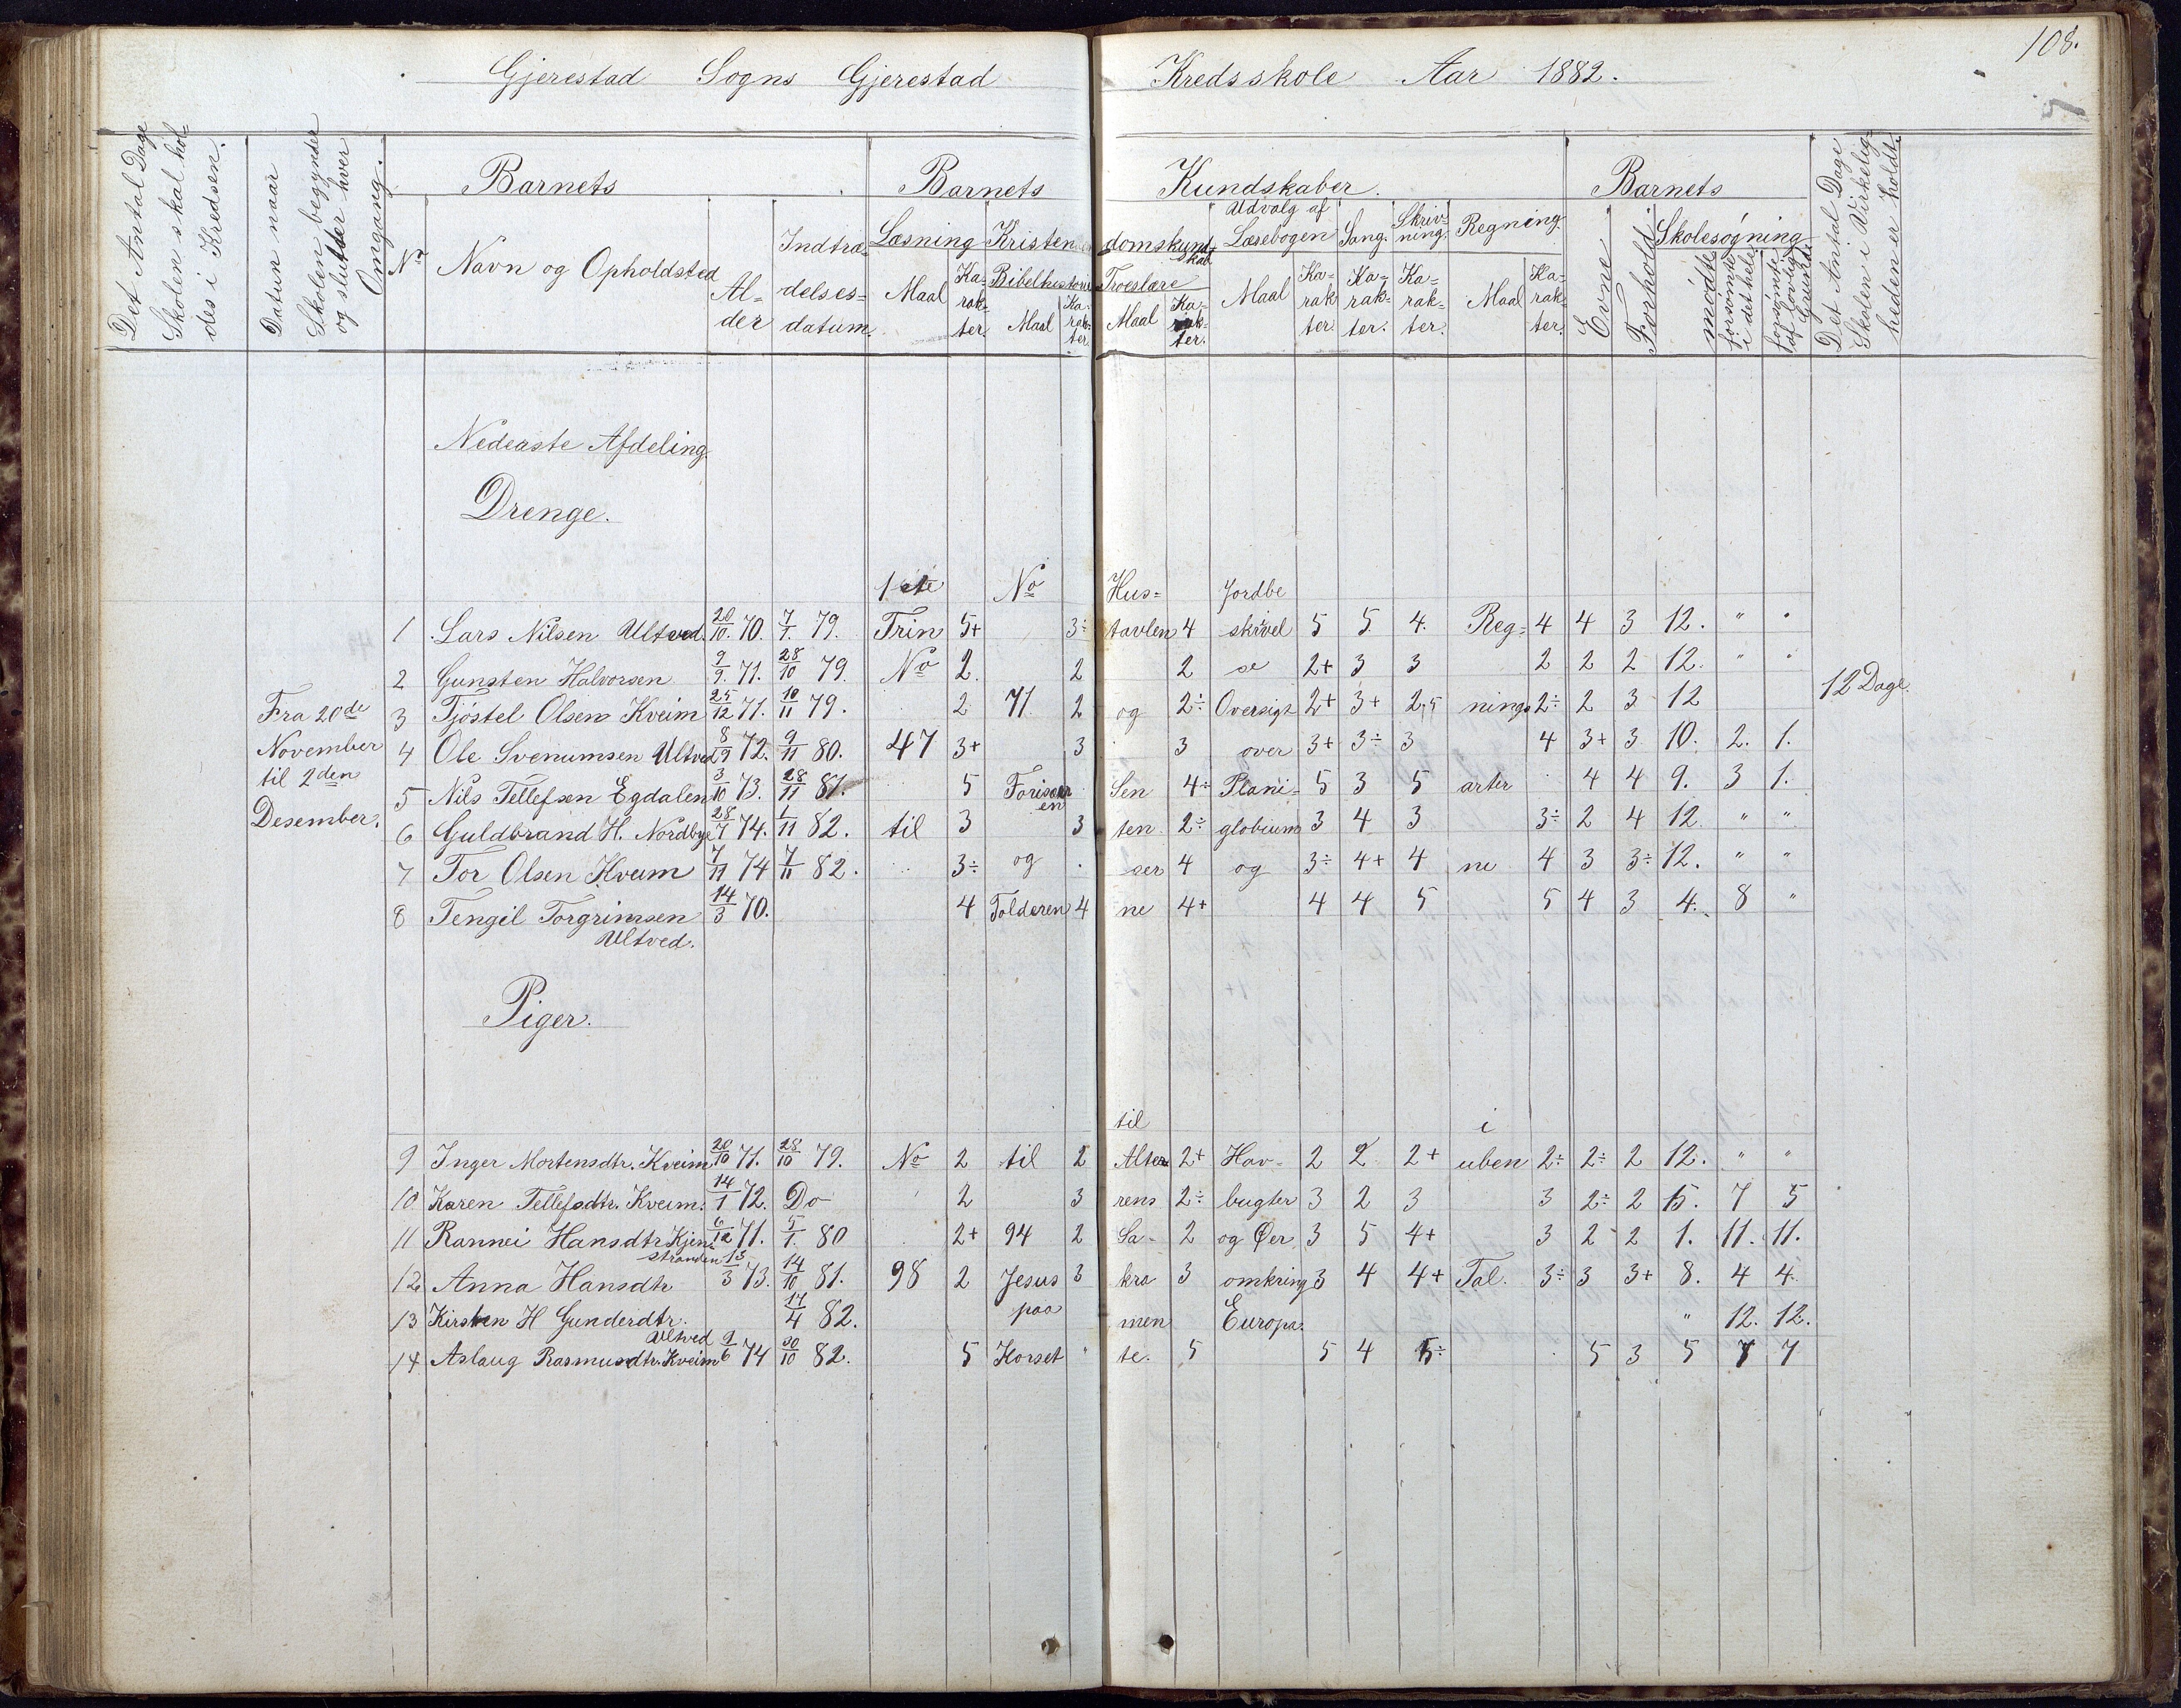 108.
Gjerestad Sogns Gjerestad Kredsskole Aar 1882.
Det Antal Dage
Skolen skal hol=
des i Kredsen.
Datum naar
Skolen begynder
og slutter hver
Omgang.
Barnets Barnets Kundskaber. Barnets
Det Antal Dage
Skolen i Virkelig=
heden er holdt.
No Navn og Opholdsted
Al=
der
Indtræ=
delses=
datum.
Læsning
Maal
Ka=
rak=
ter.
Kristendomskund=
skab
Bibelhistorie
Maal
Ka=
rak=
ter.
Troeslære
Maal
Ka=
rak=
ter.
Udvalg af
Læsebogen
Maal
Ka=
rak
ter.
Sang.
Ka=
rak=
ter.
Skriv=
ning.
Ka=
rak=
ter.
Regning.
Maal
Ka=
rak=
ter.
Evne
Forhold
Skolesøgning
mødte
forsømte
i det hele
forsømte
af lovlig
Grund
Nederste Afdeling.
Drenge.
1ste No Hus= Jordbe
1 Lars Nilsen Ultved. 20/10. 70. 7/1. 79. Trin 5+ 3÷ tavlen 4 skivel 5 5 4. Reg= 4 4 3 12. " "
2 Gunsten Halvorsen 9/9. 71. 28/10 79. No 2. 2 2 se 2+ 3 3 2 2 2 12. " "
3 Tjøstel Olsen Kveim 25/12 71. 10/11 79. 2 71 2 og 2÷ Oversigt 2+ 3+ 2,5 nings 2÷ 2 3 12
4 Ole Svenumsen Ultved 8/9 72. 9/11 80. 47 3+ 3 3 over 3+ 3÷ 3 4 3+ 3 10. 2. 1.
5 Nils Tellefsen Egdalen 3/10 73. 28/11 81. 5 Sen 4÷ Plani= 5 3 5 arter 4 4 9. 3 1.
6 Guldbrand H. Nordbye 28/7 74. 1/11 82. til 3 3 ten 2÷ globium 3 4 3 3÷ 2 4 12 " "
7 Tor Olsen Kveim 7/11 74 7/11 82. 3÷ og ser 4 og 3÷ 4+ 4 ne 4 3 3÷ 12. " "
8 Tengil Torgrimsen 14/3 70. 4 Tolderen 4 ne 4+ 4 4 5 5 4 3 4. 8 "
Ultved.
Fra 20de
November
til 2den
Desember.
12 Dage.
Piger.
til i
9 Inger Mortensdtr. Kveim 20/10 71. 28/10 79. No 2 til 2 Alter 2+ Hav= 2 2 2+ uben 2÷ 2÷ 2 12. " "
10 Karen Tellefsdtr. Kveim. 14/1 72. Do 2 3 rens 2÷ bugter 3 2 3 3 2÷ 2 5. 7 5
11 Rannei Hansdtr Kjen= 6/12 71. 5/1. 80 2+ 94 2 Sa= 2 og Øer 3 5 4+ 3 2 2 1. 11. 11.
stranden
12 Anna Hansdtr 13/3 73. 14/10 81. 98 2 Jesus 3 kra 3 omkring 3 4 4+ Tal. 3÷ 3 3+ 8. 4 4.
13 Kirsten H Gunderdtr. 14/4 82. paa men Europa. " 12. 12.
Ultved
14 Aslaug Rasmusdtr. Kveim 9/6 74 30/10 82. 5 Korset " te. 5 5 4 5÷ 5 3 5 7 7